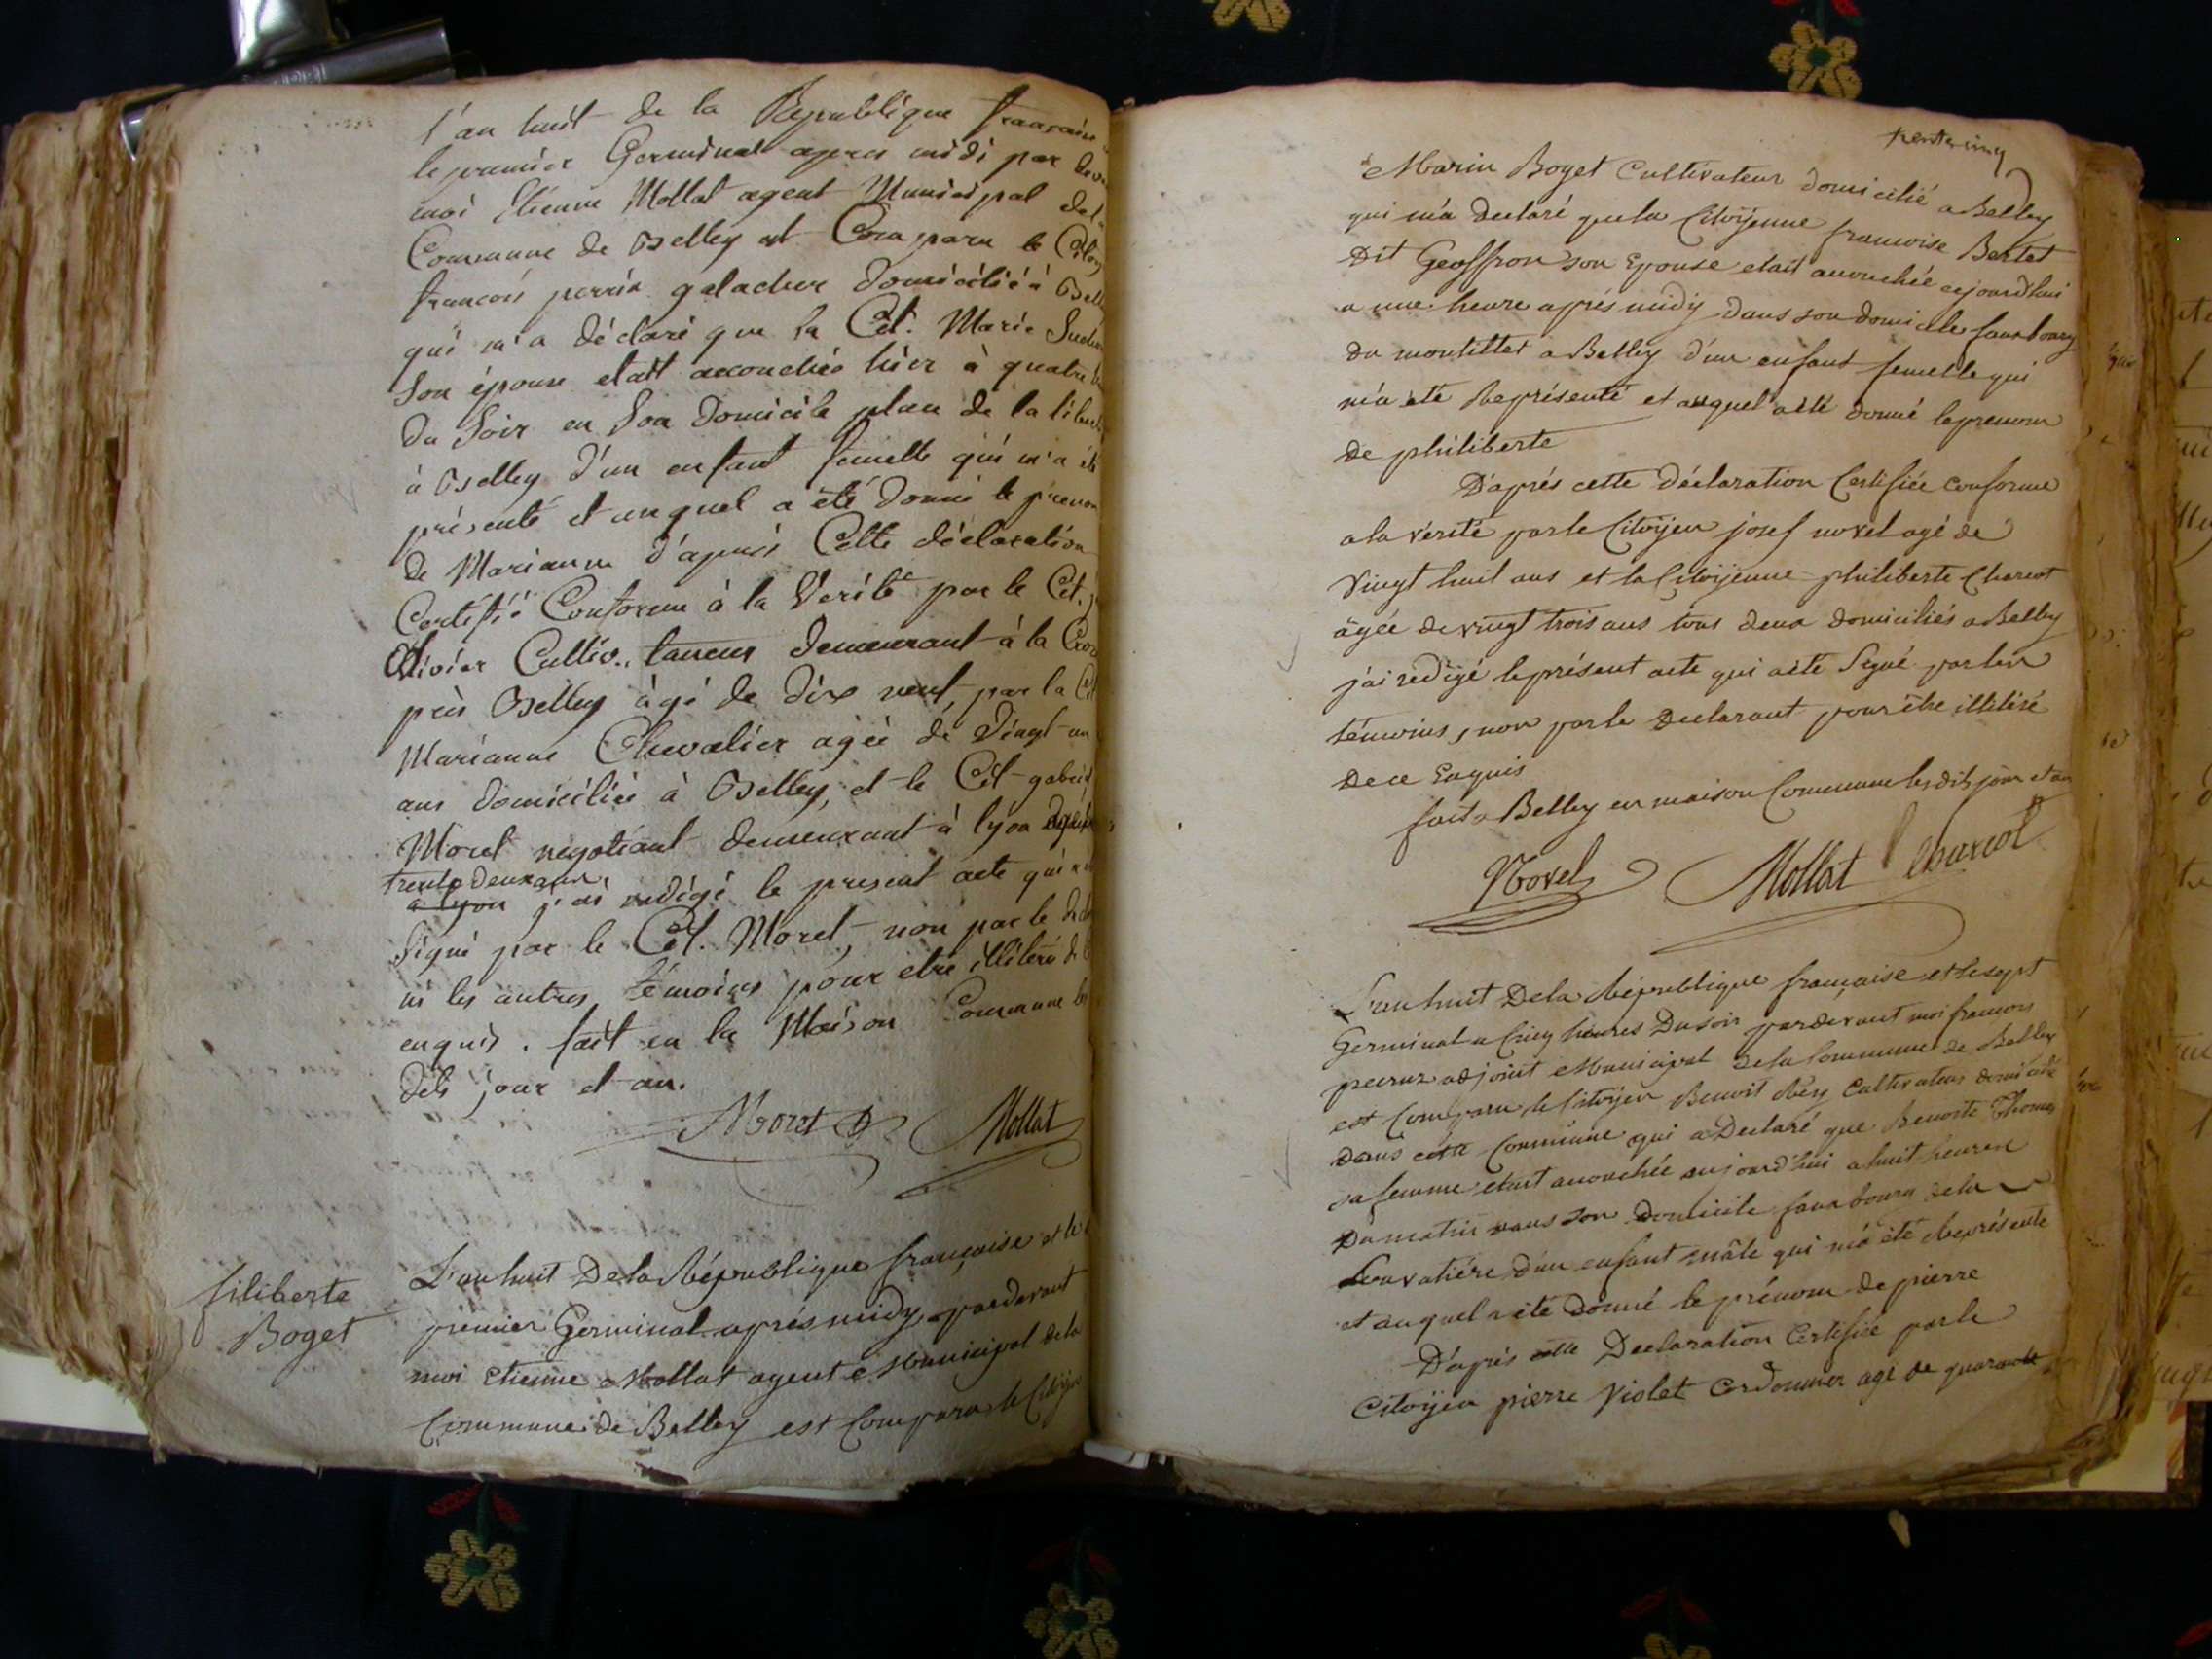 l'an huit de la République française
le premier Germinal apres midi par dev
moi Etienne Mollat agent Municipal del
Commune de Belley est Comparu le Citoy
francois perrin galacher domicilié à Bell
qui m'a déclaré que la Cit. Marie
son épouse etait accouchée hier à quatre
du soir en son domicile place de la libert
à Belley d'un enfant femelle qui m'a été
présenté et auquel a été donné le prenom
de Marianne d'après Cette déclaration
Certifié Conforme à la Vérité par le Cit.
Olivier Cultiv. taneur demeurant à la
près Belley âgé de dix neuf, par la Cit
Marianne Chevalier agée de Vingt-un
ans domiciliée à Belley, et le Cit gabriel
Moret négotiant demeurant à lyon
trente deux ans
a lyon j'ai redigé le present acte qui a
signé par le Cit. Moret, non par le
ni les autres témoins pour etre illiteré de
enquis. fait en la Maison Commune les
dits jour et an.
Moret Mollat
filiberte
Boget
L'an huit De la République française et le
premier Germinal après midy pardevant
moi etienne Mollat agent Municipal dela
Commune de Belley est Comparu le Citoyen
trente cinq
Marin Boget Cultivateur domicilié a Belley
qui m'a declaré que la Citoÿenne francoise Bertet
Dit Geoffron son Epouse etait accouchée cejourdhui
a une heure après midy dans son domicile fauxbourg
du montillet a Belley d'un enfant femelle qui
m'a été Représenté et auquel a été donné le prenom
de philiberte
D'après cette déclaration Certifiée conforme
a la vérité par le Citoÿen josef novel agé de
vingt huit ans et la Citoÿenne philiberte Charcot
âgée de vingt trois ans tous deux domiciliés a Belley
j'ai redigé le présent acte qui a été Signé par les
témoins, non par le Declarant pour être illitéré
De ce Enquis
fait a Belley en maison Commune les dits jour et an
Novel Mollat Charcot
L'an huit Dela République française et le sept
Germinal a Cinq heures Du soir pardevant moi francois
peccruz adjoint Municipal dela Commune de Belley
est Comparu le Citoÿen Benoit Réy Cultivateur domicilié
Dans cette Commune qui a Declaré que Benoite Thomas
sa femme etait accouchée aujourd'hui a huit heures
Du matin dans son Domicile fauxbourg dela
Lavatiére d'un enfant mâle qui m'a été Représenté
et auquel a été Donné le prénom de pierre
D'après cette Declaration Certifiée par le
Citoÿen pierre Violet Cordonnier agé de quarante